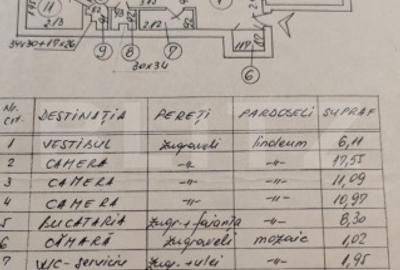 11
2,13
34x30+17x26
9
8
7
6
2,12
30x34
Nr. crt. DESTINAȚIA PEREȚI PARDOSELI SUPRAF
1 VESTIBUL zugraveli linoleum 6,11
2 CAMERA -"- -"- 17,55
3 CAMERA -"- -"- 11,09
4 CAMERA -"- -"- 10,97
5 BUCATARIA zugr.+faianta -"- 8,30
6 CĂMARA zugraveli mozaic 1,02
7 W.C-serviciu zugr.+ulei -"- 1,95